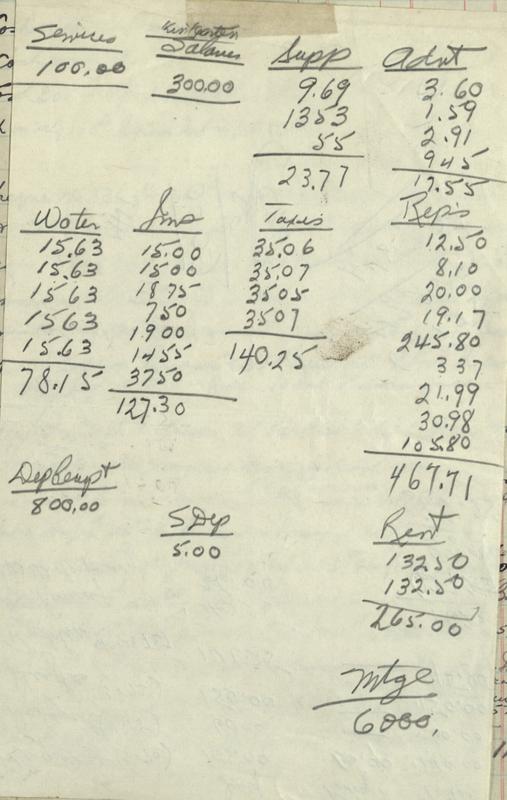 Services
100.00
Salaries
300.00
Supp
9.69
1353
55
23.77
Advt
3.60
1.59
2.91
945
17.55
Water
15.63
15.63
1563
1563
15.63
78.15
Ins
15.00
1500
1875
750
1900
1455
3750
127.30
Taxes
35.06
35.07
3505
3507
140.25
Rep's
12.50
8.10
20.00
19.17
245.80
337
21.99
30.98
105.80
467.71
800.00
S Dep
5.00
Rent
13250
132.50
265.00
Mtge
6000.